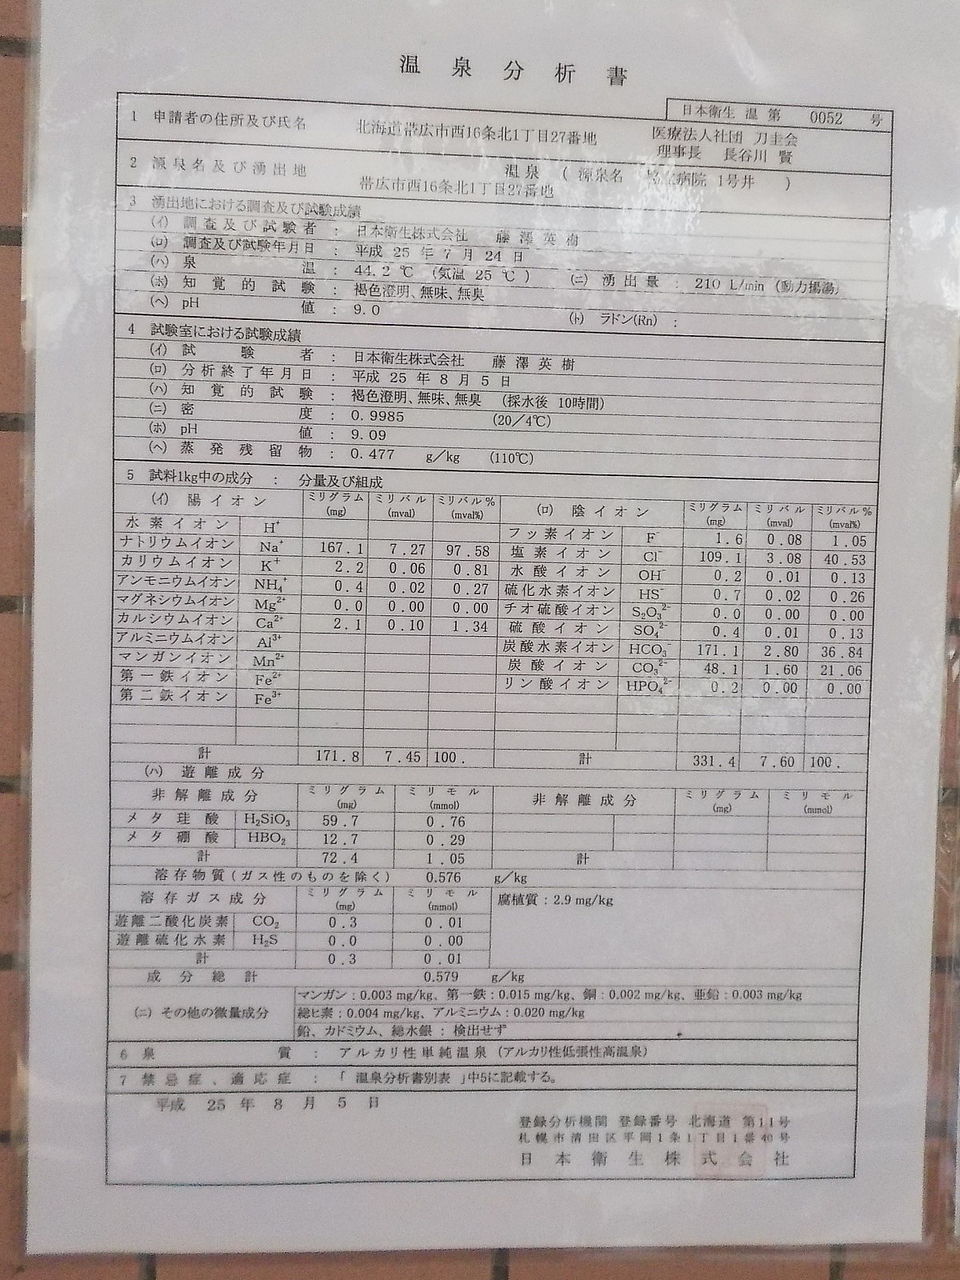 温泉分析書
日本衛生 温 第 0052 号
1 申請者の住所及び氏名 北海道帯広市西16条北1丁目27番地 医療法人社団 刀圭会
理事長 長谷川 賢
2 源泉名及び湧出地 温泉 ( 源泉名 病院 1号井 )
帯広市西16条北1丁目27番地
3 湧出地における調査及び試験成績
(イ) 調査及び試験者 : 日本衛生株式会社 藤澤英樹
(ロ) 調査及び試験年月日 : 平成 25 年 7 月 24 日
(ハ) 泉温 : 44.2 ℃ (気温 25 ℃ ) (ニ) 湧出量 : 210 L/min (動力揚湯)
(ホ) 知覚的試験 : 褐色澄明、無味、無臭
(ヘ) pH値 : 9.0 (ト) ラドン(Rn) :
4 試験室における試験成績
(イ) 試験者 : 日本衛生株式会社 藤澤英樹
(ロ) 分析終了年月日 : 平成 25 年 8 月 5 日
(ハ) 知覚的試験 : 褐色澄明、無味、無臭 (採水後 10時間)
(ニ) 密度 : 0.9985 (20/4℃)
(ホ) pH値 : 9.09
(ヘ) 蒸発残留物 : 0.477 g/kg (110℃)
5 試料1kg中の成分 : 分量及び組成
(イ) 陽イオン ミリグラム(mg) ミリバル(mval) ミリバル%(mval%) (ロ) 陰イオン ミリグラム(mg) ミリバル(mval) ミリバル%(mval%)
水素イオン H⁺ フッ素イオン F⁻ 1.6 0.08 1.05
ナトリウムイオン Na⁺ 167.1 7.27 97.58 塩素イオン Cl⁻ 109.1 3.08 40.53
カリウムイオン K⁺ 2.2 0.06 0.81 水酸イオン OH⁻ 0.2 0.01 0.13
アンモニウムイオン NH₄⁺ 0.4 0.02 0.27 硫化水素イオン HS⁻ 0.7 0.02 0.26
マグネシウムイオン Mg²⁺ 0.0 0.00 0.00 チオ硫酸イオン S₂O₃²⁻ 0.0 0.00 0.00
カルシウムイオン Ca²⁺ 2.1 0.10 1.34 硫酸イオン SO₄²⁻ 0.4 0.01 0.13
アルミニウムイオン Al³⁺ 炭酸水素イオン HCO₃⁻ 171.1 2.80 36.84
マンガンイオン Mn²⁺ 炭酸イオン CO₃²⁻ 48.1 1.60 21.06
第一鉄イオン Fe²⁺ リン酸イオン HPO₄²⁻ 0.2 0.00 0.00
第二鉄イオン Fe³⁺
計 171.8 7.45 100. 計 331.4 7.60 100.
(ハ) 遊離成分
非解離成分 ミリグラム(mg) ミリモル(mmol) 非解離成分 ミリグラム(mg) ミリモル(mmol)
メタ珪酸 H₂SiO₃ 59.7 0.76
メタ硼酸 HBO₂ 12.7 0.29
計 72.4 1.05 計
溶存物質(ガス性のものを除く) 0.576 g/kg
溶存ガス成分 ミリグラム(mg) ミリモル(mmol) 腐植質 : 2.9 mg/kg
遊離二酸化炭素 CO₂ 0.3 0.01
遊離硫化水素 H₂S 0.0 0.00
計 0.3 0.01
成分総計 0.579 g/kg
(ニ) その他の微量成分 マンガン : 0.003 mg/kg、第一鉄 : 0.015 mg/kg、銅 : 0.002 mg/kg、亜鉛 : 0.003 mg/kg
総ヒ素 : 0.004 mg/kg、アルミニウム : 0.020 mg/kg
鉛、カドミウム、総水銀 : 検出せず
6 泉質 : アルカリ性単純温泉 (アルカリ性低張性高温泉)
7 禁忌症、適応症 : 「 温泉分析書別表 」中5に記載する。
平成 25 年 8 月 5 日
登録分析機関 登録番号 北海道 第11号
札幌市清田区平岡1条1丁目1番40号
日本衛生株式会社